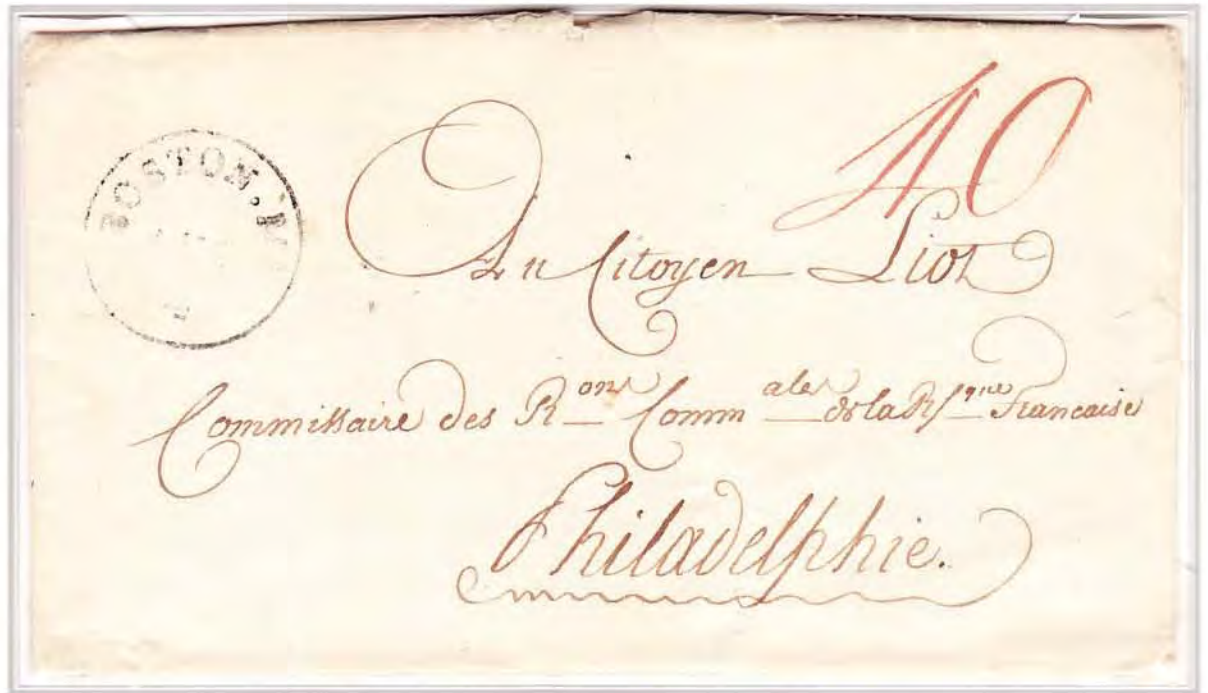 40
BOSTON.
Au Citoyen Liot
Commissaire des Rons Commales de la Rque Francaise
Philadelphie.